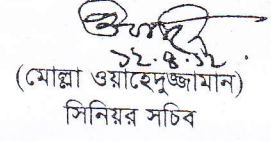 ১২.৪.১২
(মোল্লা ওয়াহেদুজ্জামান)
সিনিয়র সচিব